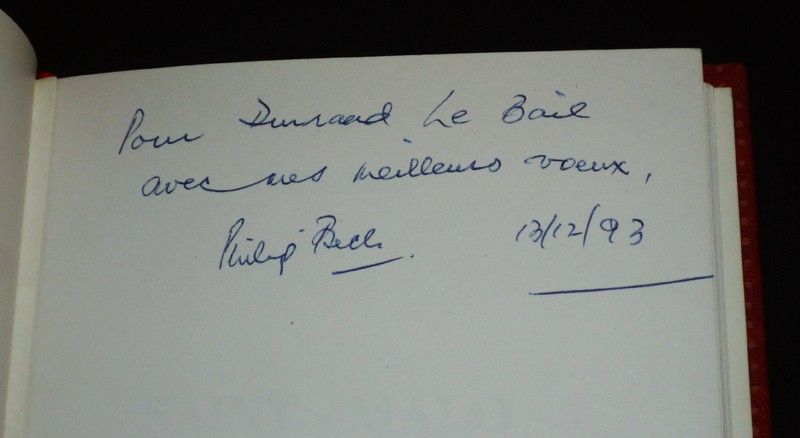 Pour Le Bail
avec mes meilleurs voeux,
Philip Beck. 13/12/93